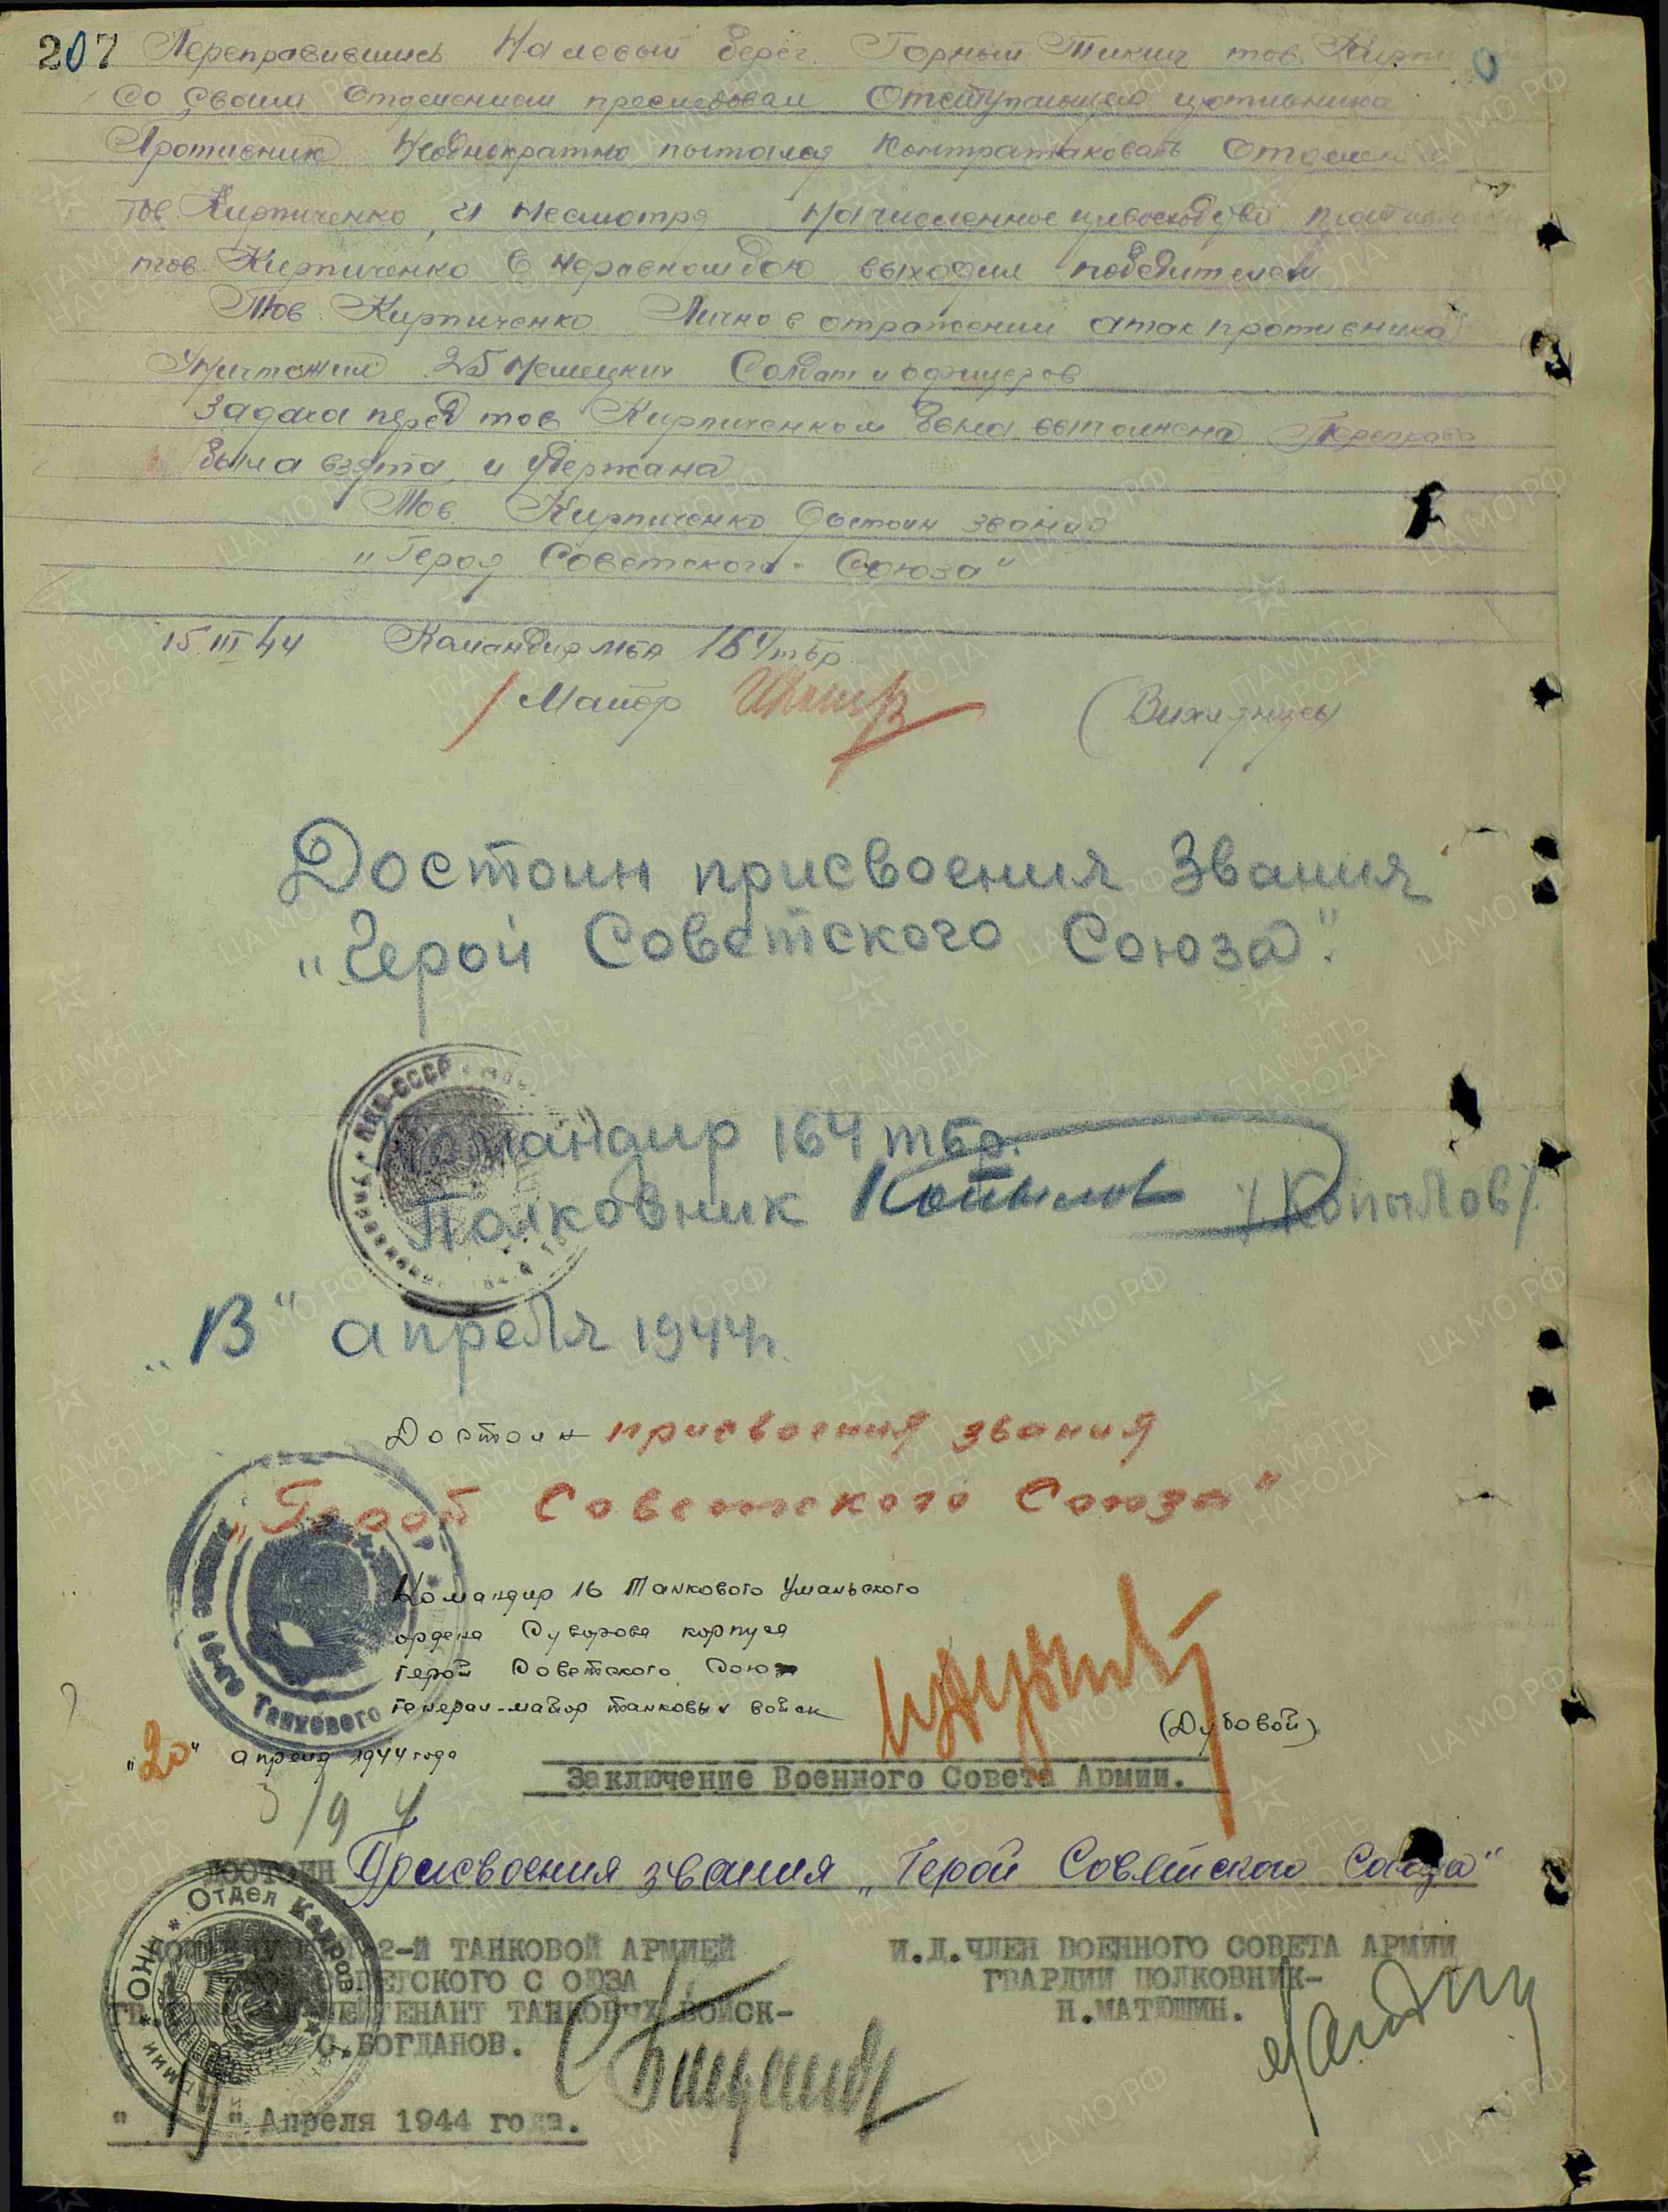 207 Переправившись На левый берег Горный Тикич тов. Кирпи
Со Своим Отделением преследовал Отступающего противника
Противник Неоднократно пытался Контратаковать Отделение
тов. Кирпиченко, и Несмотря На численное превосходство противника
тов. Кирпиченко в неравном бою выходил победителем
Тов. Кирпиченко Лично в отражении атак противника
Уничтожил 25 Немецких Солдат и офицеров
Задача перед тов Кирпиченком была выполнена Переправа
была взята и удержана
Тов. Кирпиченко Достоин звания
"Героя Советского Союза"
15.III 44 Командир мба 164 тбр
Майор (Вихлянцев)
Достоин присвоения Звания
"Герой Советского Союза".
Командир 164 тбр.
Полковник Копылов /Копылов/.
"13" апреля 1944 г.
НКО-СССР
Достоин присвоения звания
"Герой Советского Союза"
Командир 16 Танкового Уманьского
ордена Суворова корпуса
Герой Советского Союза
Генерал-майор танковых войск
(Дубовой)
"20" апреля 1944 года
16-го Танкового
3/9
Заключение Военного Совета Армии.
ДОСТОИН Присвоения звания "Герой Советского Союза"
2-Й ТАНКОВОЙ АРМИЕЙ
СОВЕТСКОГО С ОЮЗА
ЛЕЙТЕНАНТ ТАНКОВЫХ ВОЙСК-
С.БОГДАНОВ.
И.Д.ЧЛЕН ВОЕННОГО СОВЕТА АРМИИ
ГВАРДИИ ПОЛКОВНИК-
Н.МАТЮШИН.
Отдел Кадров
" " Апреля 1944 года.
ПАМЯТЬ НАРОДА
ЦА МО РФ